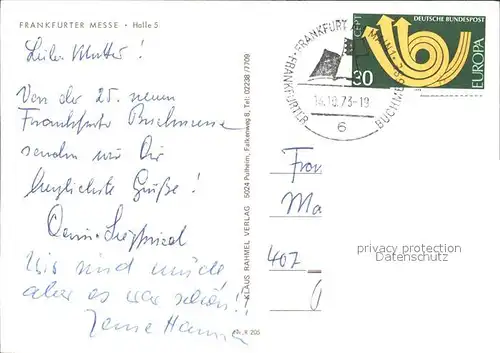 FRANKFURTER MESSE • Halle 5
Liebe Mutter!
Von der 25. neuen
Frankfurter Buchmesse
senden wir Dir
herzlichste Grüße!
Wir sind müde
aber es war schön!!
Hanna
KLAUS RAHMEL VERLAG 5024 Pulheim, Falkenweg 8, Tel: 02238/7709
Nr. R 205
FRANKFURT AM MAIN 1
FRANKFURTER BUCHMESSE
14.10.73-19
6
CEPT
DEUTSCHE BUNDESPOST
30
EUROPA
Frau
Ma
407
privacy protection
Datenschutz